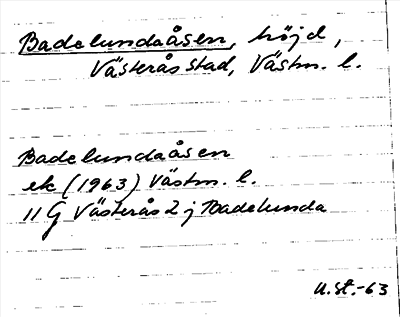 Badelundaåsen, höjd,
Västerås stad, Västm. l.
Badelundaåsen
ek (1963) Västm. l.
11 G Västerås 2 j Badelunda
U.St.-63